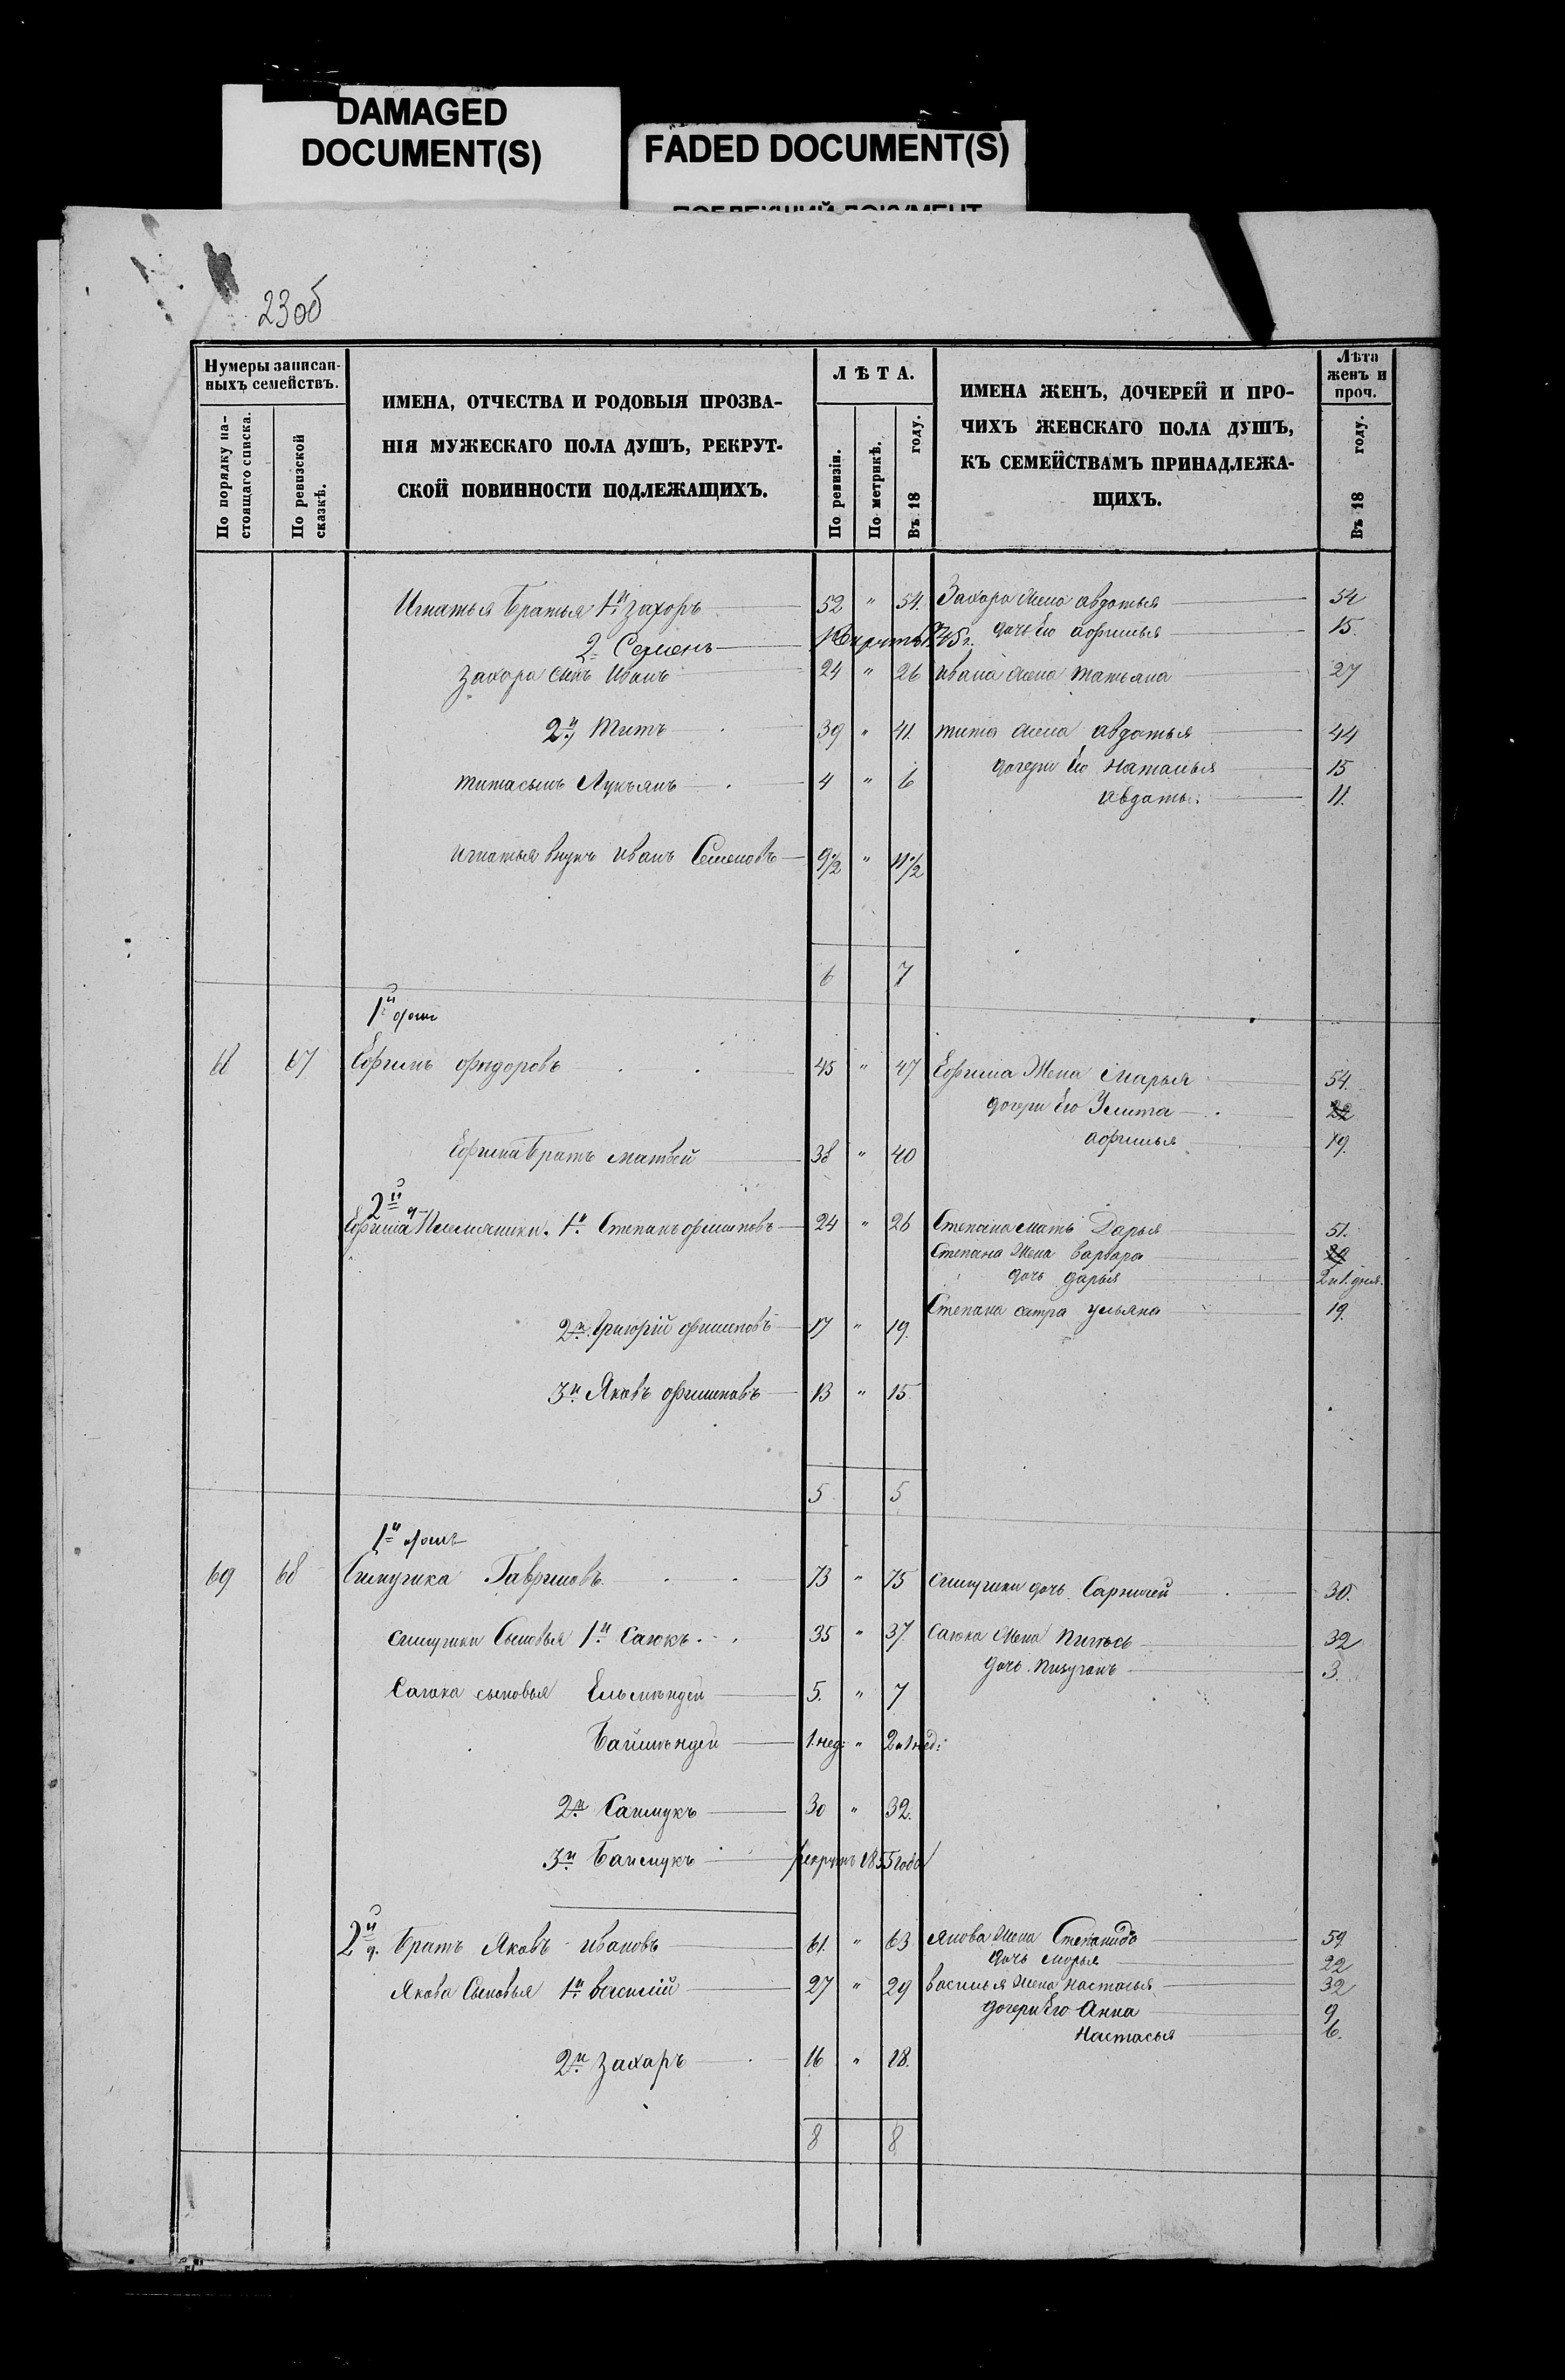 DAMAGED
DOCUMENT(S)
FADED DOCUMENT(S)
ПОБЛЕКШИЙ ДОКУМЕНТ
23об
Нумеры записан-
ныхъ семействъ.
По порядку на-
стоящаго списка.
По ревизской
сказкѣ.
ИМЕНА, ОТЧЕСТВА И РОДОВЫЯ ПРОЗВА-
НІЯ МУЖЕСКАГО ПОЛА ДУШЪ, РЕКРУТ-
СКОЙ ПОВИННОСТИ ПОДЛЕЖАЩИХЪ.
ЛѢТА.
По ревизіи.
По метрикѣ.
Въ 18 году.
ИМЕНА ЖЕНЪ, ДОЧЕРЕЙ И ПРО-
ЧИХЪ ЖЕНСКАГО ПОЛА ДУШЪ,
КЪ СЕМЕЙСТВАМЪ ПРИНАДЛЕЖА-
ЩИХЪ.
Лѣта
женъ и
проч.
Въ 18 году.
Игнатья братья 1й Захоръ 52 " 54. Захора жена авдотья 54
2 Семенъ дочь Его афимья 15.
Захора сынъ Иванъ 24 " 26 Ивана жена татьяна 27
2й Титъ 39 " 41. тита жена авдотья 44
дочери Его Наталья 15
титасынъ Лукьянъ 4 " 6
авдоть: 11.
Игнатья внукъ Иванъ Семеновъ 9½ " 11½
6 7
1й
68 67 Ефимъ фидоровъ 45 " 47 Ефима Жена Марья 54.
дочери Его Улита 22
Ефима братъ матвей 38 " 40 афимья 19.
2й д.
Ефима Племянники. 1й Степанъ филиповъ 24 " 26 Степана мать Дарья 51.
Степана Жена варвара 29
дочь дарья 2 и 1. дня.
Степана сестра ульяна 19.
2й Григорій филиповъ 17 " 19.
3й Яковъ филиповъ 13 " 15
5 5
1й
69 68 Гавриловъ 73 " 75 дочь 30.
Сыновья 1й Саюкъ. 35 " 37. Саюка Жена 32
дочь 3.
Саюка сыновья 5. " 7
1.нед: " 2 и 1 нед:
2й Саимукъ 30 " 32.
3й Баимукъ рекрутъ 1855 года
2й д. братъ Яковъ Ивановъ 61. " 63 Якова Жена Степанида 59
дочь марья 22
Якова Сыновья 1й василій 27 " 29 василья Жена настасья 32
дочери Его Анна 9
Настасья 6.
2й Захаръ 16 " 18.
8 8